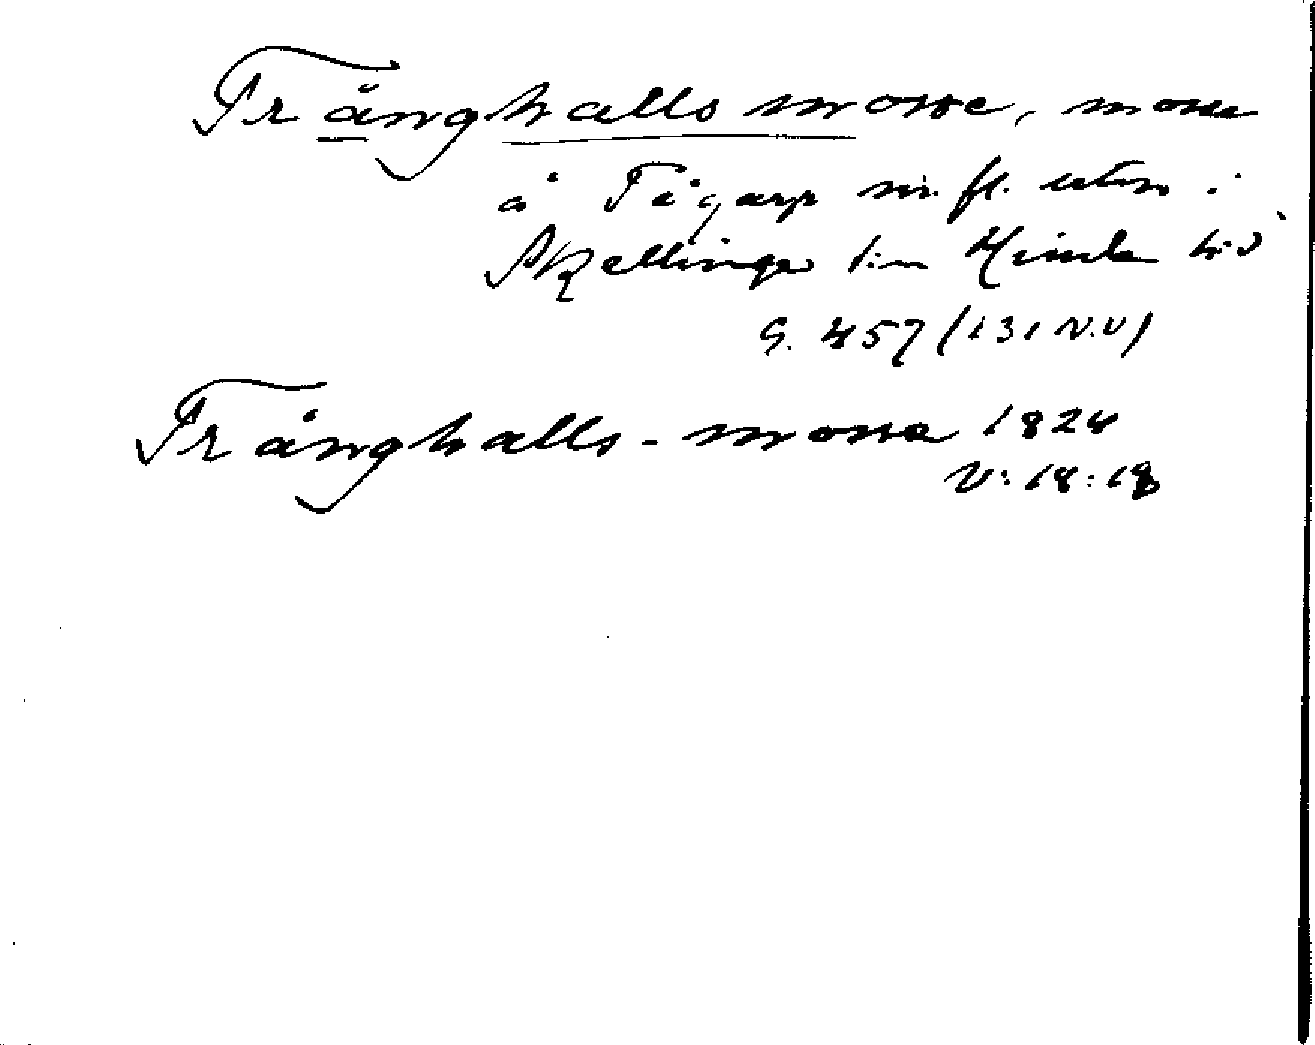 Tränghalls mosse, mosse
å Tågarp m.fl. utm. i
Skellinge sn Himle hd
G. 457 (131 N.V)
Trånghalls-mosse 1824
V: 18: 18